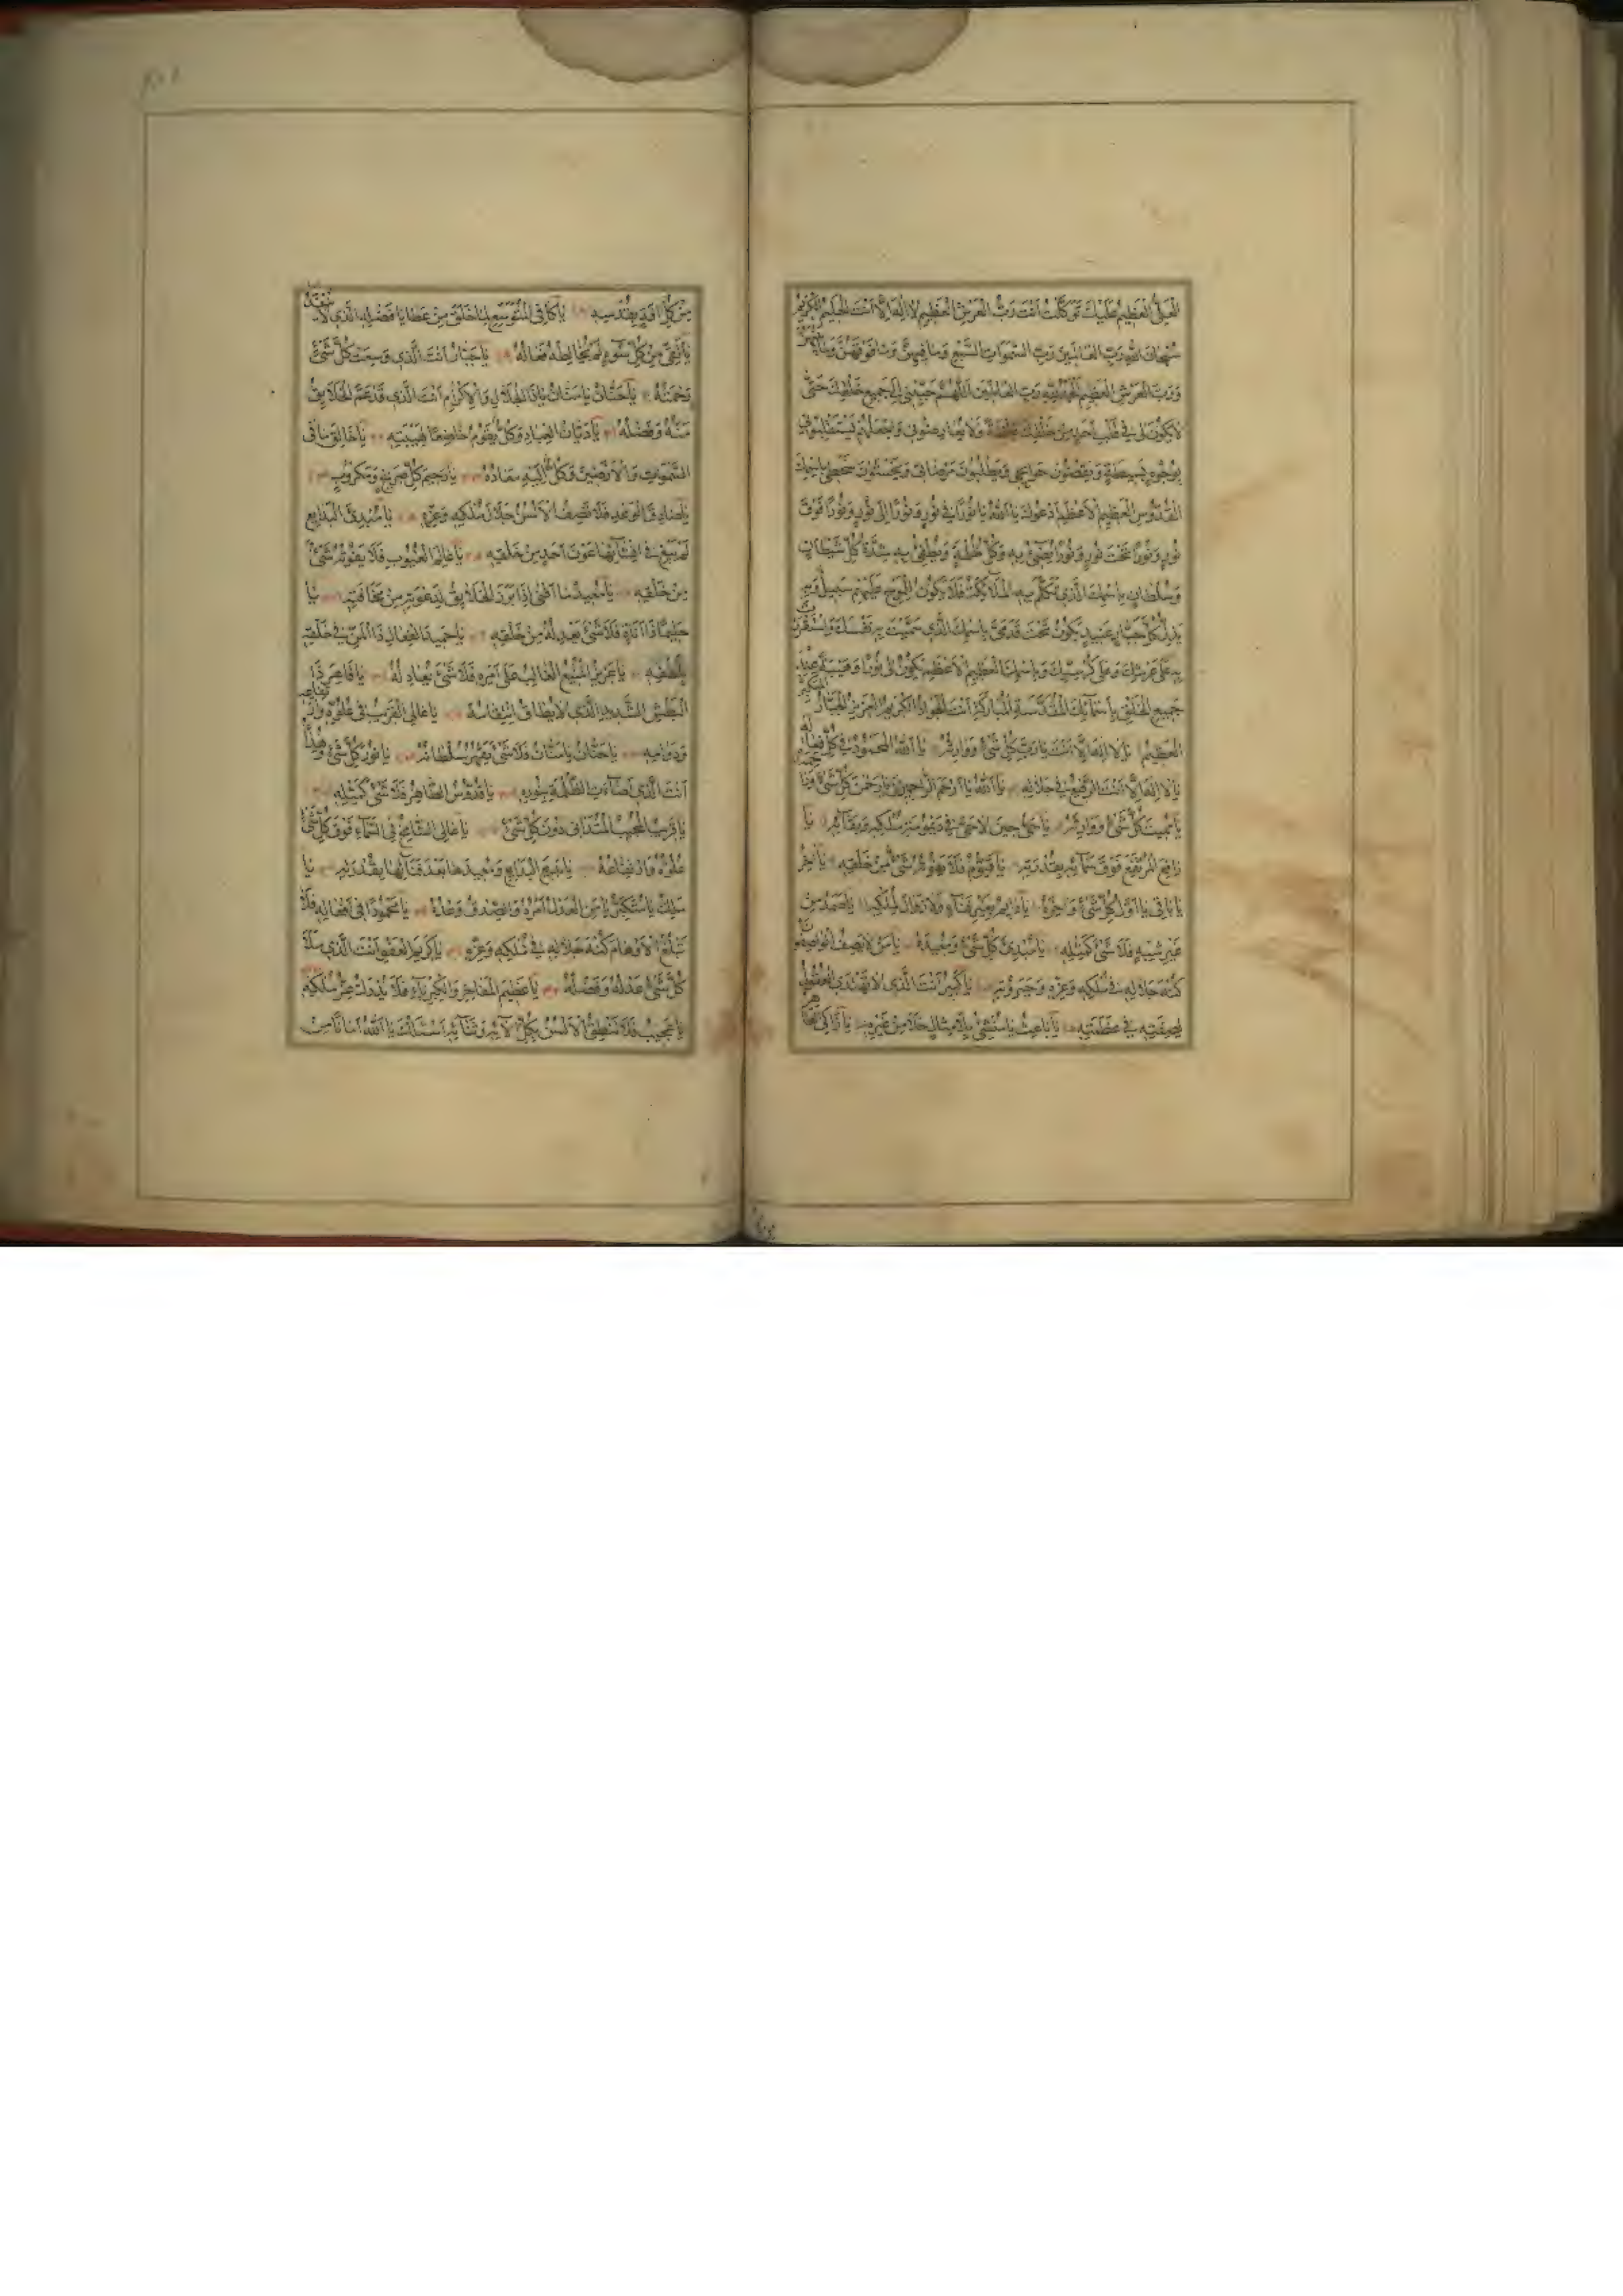 العلي العظيم عليك توكلت انت رب العرش العظيم لا اله الا انت الحليم الكريم
سبحان الله رب العالمين رب السموات السبع وما فيهن وما فوقهن وما
ورب العرش العظيم الحمد لله رب العالمين اللهم حببني الى جميع خلقك حتى
لا يكون لي في قلب احد من خلقك ولا يعارضوني واجعلهم
بوجوه بسيطة ويقضون حوائجي ويطلبون مرضاتي ويخشون سخطي باسمك
القدوس العظيم الاعظم ادعوك يا الله يا نورا في نور ونورا الى نور ونورا فوق
نور ونورا تحت نور ونورا يضيء به وكل ظلمة ويطفئ به شدة كل شيطان
وسلطان باسمك الذي تكلم به الملائكة فلا يكون للموج عليهم سبيل وبه
يذل كل جبار عنيد يكون تحت قدمي باسمك الذي سميت به نفسك واستقررت
به على عرشك وعلى كرسيك وباسمك العظيم الاعظم يكون لي نورا وهيبة عند
جميع الخلق باسمائك المقدسة المباركة انت الجواد الكريم العزيز الجبار المتكبر
العظيم يا لا اله الا انت يا رب كل شيء ووارثه يا الله المحمود في كل فعاله
يا لا اله الا انت الرفيع في جلاله يا الله يا ارحم الراحمين يا رحمن كل شيء
يا مميت كل شيء ووارثه يا حي حين لا حي في ديمومة ملكه وبقائه يا
رافع المرتفع فوق سمائه بقدرته يا قيوم فلا يفوته شيء من خلقه يا آخر
يا باقي يا اول كل شيء وآخره يا دائم بغير فناء ولا زوال لملكه يا صمد من
غير شبيه فلا شيء كمثله يا مبدئ كل شيء ومعيده يا من لا يصف
كنه جلاله في ملكه وعزه وجبروته يا كبير انت الذي لا تهتدي العقول
لصفته في عظمته يا باعث يا منشئ بلا مثال خلا من غيره يا زاكي
من كل آفة بقدسه يا كافي المتوسع لما خلق من عطايا فضله الذي لا ينفد
يا نقي من كل سوء لم يخالطه فعاله يا جبار انت الذي وسعت كل شيء
رحمته يا حنان يا منان يا ذا الجلال والاكرام انت الذي قد عم الخلايق
منه وفضله يا ديان العباد وكل يقوم خاضعا لهيبته يا خالق ما في
السموات والارضين وكل اليه معاده يا رحيم كل صريخ ومكروب
يا صادق الوعد فلا تصف الالسن جلال ملكه وعزه يا مبدئ البدايع
لم يبغ في انشائها عون احد من خلقه يا عالم الغيوب فلا يفوته شيء
من خلقه يا معيد ما افنى اذا برز الخلايق لدعوته من مخافته يا
حليما ذا اناة فلا شيء يعدله من خلقه يا حميد الفعال ذا المن في خلقه
بلطفه يا عزيز المنيع الغالب على امره فلا شيء يعادله يا قاهر ذا
البطش الشديد الذي لا يطاق انتقامه يا عالي القريب في علوه وارتفاعه
ودوامه يا حنان يا منان فلا شيء يقهر سلطانه يا نور كل شيء وهداه
انت الذي اضاءت الظلمة بنوره يا قدوس الطاهر فلا شيء كمثله
يا قريب المجيب المتداني دون كل شيء يا عالي الشامخ في السماء فوق كل شيء
علوه وارتفاعه يا بديع البدايع ومعيدها بعد فنائها بقدرته يا
متكبر يا من العدل امره والصدق وعده يا محمودا في افعاله فلا
تبلغ الاوهام كنه جلاله في ملكه وعزه يا كريم العفو انت الذي ملأ
كل شيء عدله وفضله يا عظيم المفاخر والكبرياء فلا يدرك عز ملكه
يا عجيب فلا تنطق الالسن بكل آلائه وثنائه اسئلك يا الله امانا من